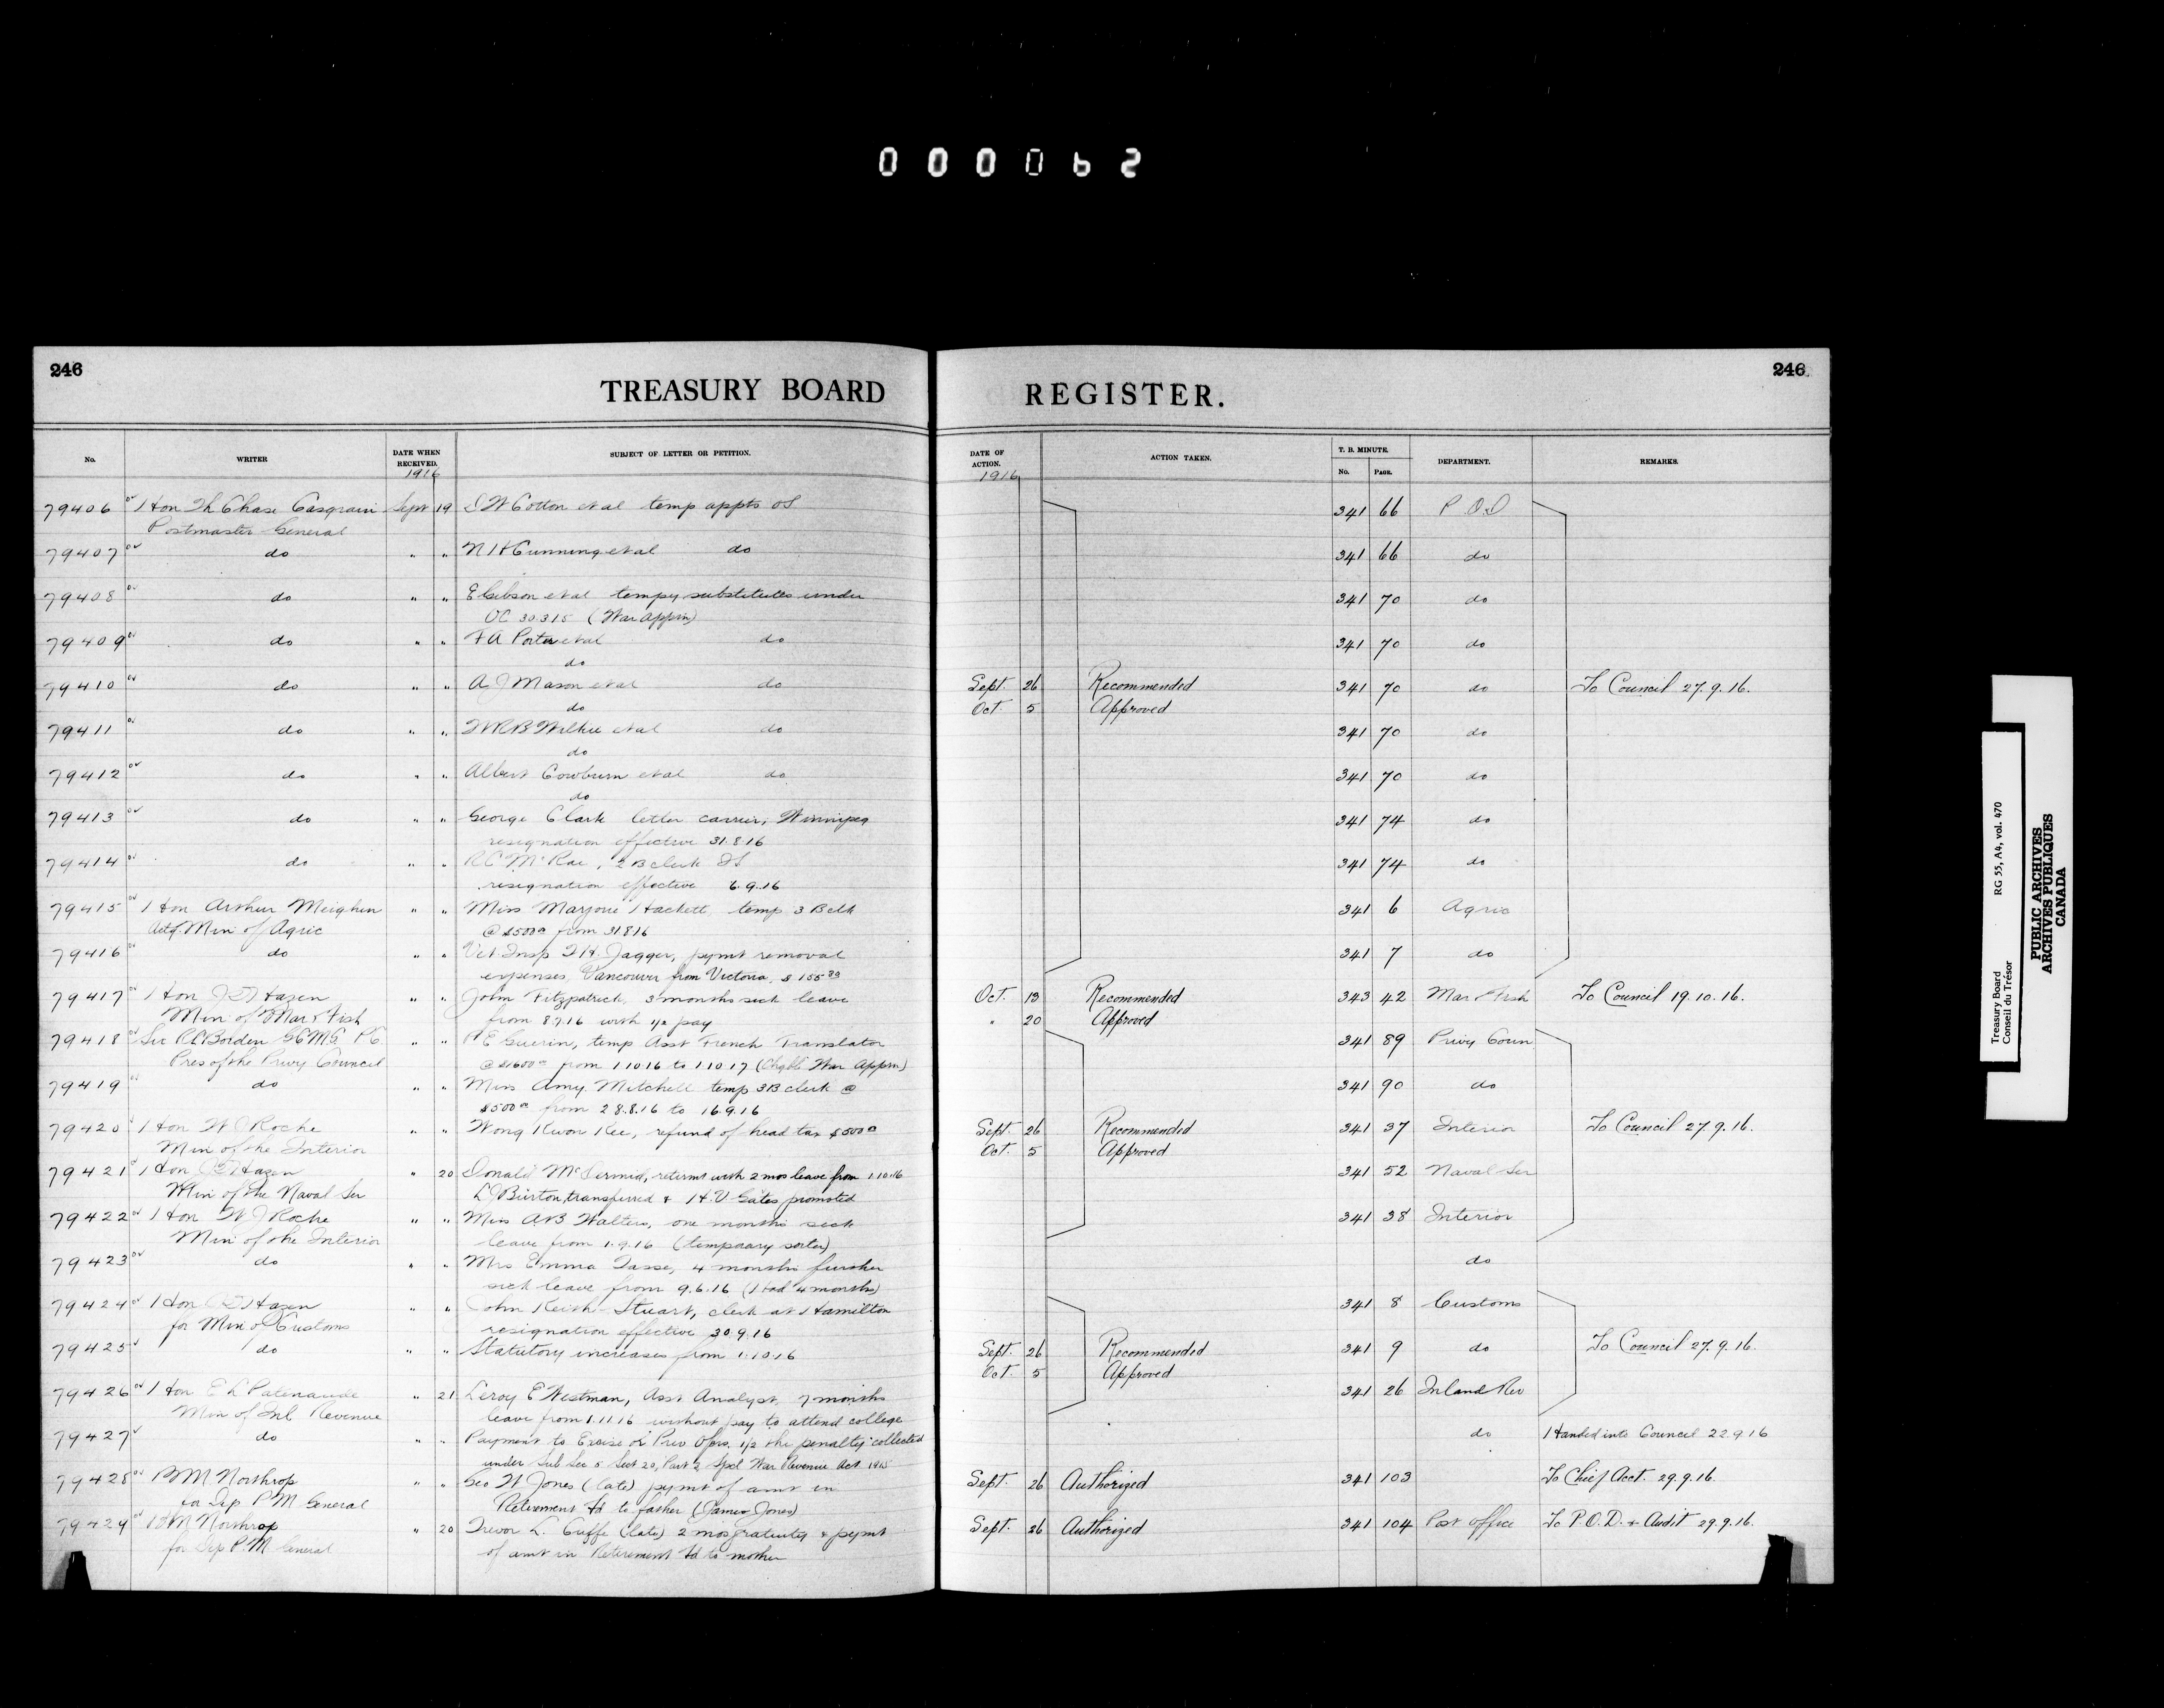 000062
246
TREASURY BOARD REGISTER.
246
No. WRITER DATE WHEN RECEIVED. SUBJECT OF LETTER OR PETITION. DATE OF ACTION. ACTION TAKEN. T. B. MINUTE. No. PAGE. DEPARTMENT. REMARKS.
1916 1916
79406 Hon Th Chase Casgrain Sept 19 D W Cotton et al temp appts OS 341 66 P.O.D
Postmaster General
79407 do " " N H Cunning et al do 341 66 do
79408 do " " E Gibson et al tempy substitutes under 341 70 do
OC 30 3 15 (War Apprn)
79409 do " " F A Porter et al do 341 70 do
do
79410 do " " A J Mason et al do Sept. 26 Recommended 341 70 do To Council 27.9.16.
do Oct. 5 Approved
79411 do " " W R B Wilkie et al do 341 70 do
do
79412 do " " Albert Cowburn et al do 341 70 do
do
79413 do " " George Clark letter carrier, Winnipeg 341 74 do
resignation effective 31.8.16
79414 do " " R C McRae, 2 B clerk 341 74 do
resignation effective 6.9.16
79415 Hon Arthur Meighen " " Miss Marjorie Hackett temp 3 B clk 341 6 Agric
Actg. Min of Agric @ $500 00 from 31 8 16
79416 do " " Vet Insp T H Jagger, pymt removal 341 7 do
expenses, Vancouver from Victoria, $155 80
79417 Hon J D Hazen " " John Fitzpatrick, 3 months sick leave Oct. 19 Recommended 343 42 Mar & Fish To Council 19.10.16.
Min of Mar & Fish from 8.7.16 with 1/2 pay " 20 Approved
79418 Sir R L Borden GCMG PC " " P E Guerin, temp Asst French Translator 341 89 Privy Coun
Pres of the Privy Council @ $1600 00 from 1 10 16 to 1 10 17 (Chgble War Apprn)
79419 do " " Miss Amy Mitchell temp 3B clerk @ 341 90 do
$500 00 from 28.8.16 to 16.9.16
79420 Hon W J Roche " " Wong Kwon Kee, refund of head tax $500 00 Sept. 26 Recommended 341 37 Interior To Council 27.9.16.
Min of the Interior Oct. 5 Approved
79421 Hon J D Hazen " 20 Donald McDermid, retirmt with 2 mos leave from 1.10.16 341 52 Naval Ser
Min of the Naval Ser L J Burton, transferred & H.V. Gates promoted
79422 Hon W J Roche " " Miss A B Walters, one months sick 341 38 Interior
Min of the Interior leave from 1.9.16 (temporary sorter)
79423 do " " Mrs Emma Tasse, 4 months further do
sick leave from 9.6.16 (Had 4 months)
79424 Hon J D Hazen " " John Keith Stuart, clerk at Hamilton 341 8 Customs
for Min of Customs resignation effective 30.9.16
79425 do " " Statutory increases from 1.10.16 Sept. 26 Recommended 341 9 do To Council 27.9.16.
Oct. 5 Approved
79426 Hon E L Patenaude " 21 Leroy E Westman, Asst Analyst, 7 months 341 26 Inland Rev
Min of Inl Revenue leave from 1.11.16 without pay to attend college
79427 do " " Payment to Excise & Prev Ofcrs. 1/2 the penalty collected do Handed into Council 22 9 16
under Sub Sec 5 Sect 20, Part 2 Spcl War Revenue Act 1915
79428 B M Northrop " " Geo W Jones (late) pymt of amt in Sept. 26 Authorized 341 103 To Chief Acct. 29.9.16.
for Dep P M General Retirement Fd to father (James Jones)
79429 B M Northrop " 20 Trevor L. Cuffe (late) 2 mos gratuity & pymt Sept. 26 Authorized 341 104 Post Office To P.O.D. & Audit 29.9.16.
for Dep P.M General of amt in Retirement Fd to mother
Treasury Board RG 55, A4, vol. 470
Conseil du Trésor
PUBLIC ARCHIVES
ARCHIVES PUBLIQUES
CANADA